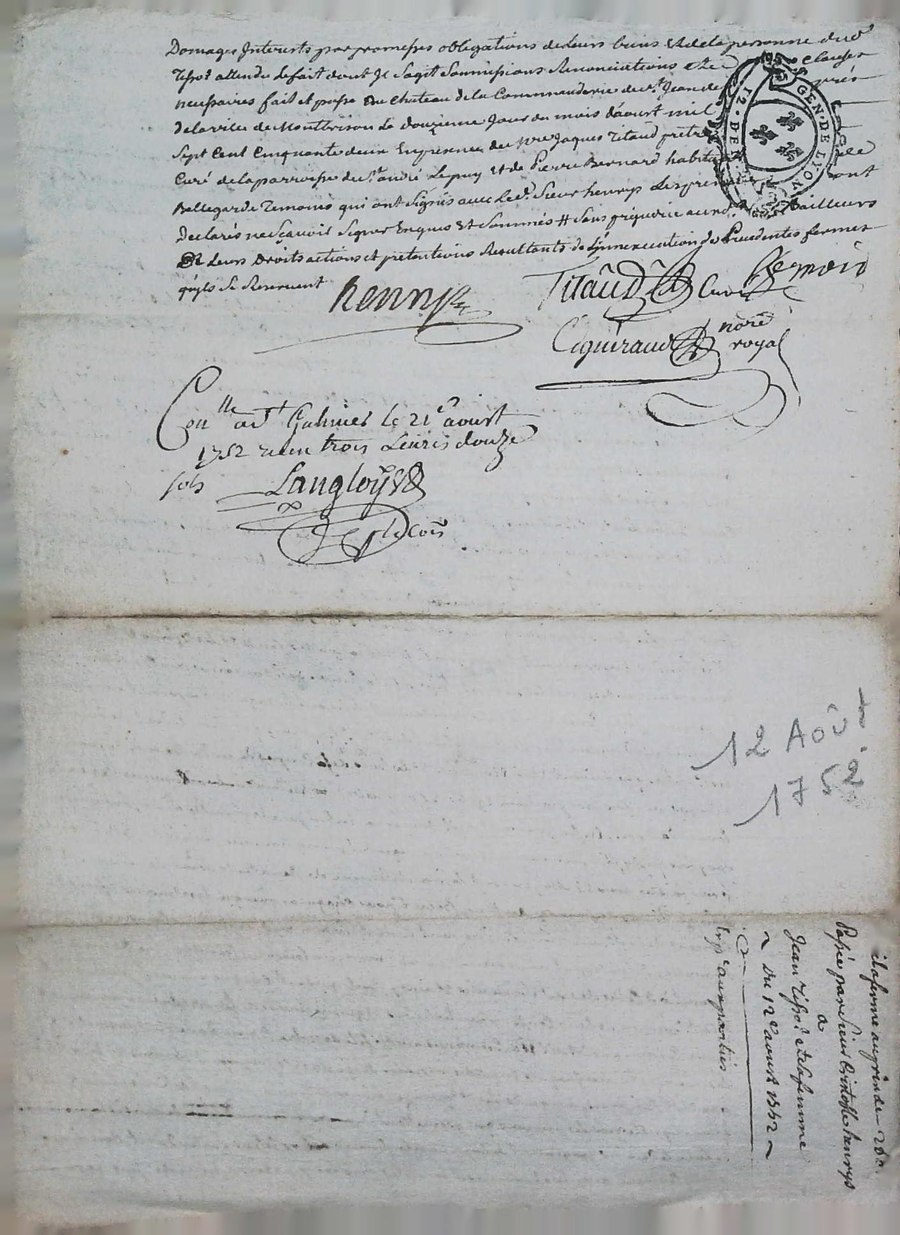 Domages Interests par promesses obligations de leurs biens Et de la personne dud.
Tissot attendu le fait dont Il Sagit Soumissions Renonciations et clauses
necessaires fait et passé au Chateau de la Commanderie de St. Jean de prés
de la ville de Montbrison le douzieme Jour du mois d'aoust mil
Sept Cent Cinquante deux En presence de Mre Jaques Titaud pretre
Curé de la parroisse de St. andré Lepuy et de Pierre Bernard habitt
Bellegarde Temoins qui ont Signés avec Led. Sieur henrys Les preneurs ont
declarés ne sçavoir Signer Enquis Et Sommés # Sans prejudice aux d. bailleurs
de Leurs Droits actions et pretentions Resultants de L'inexecution des precedentes fermes
qu'ils Se Reservent
henrys
Titaud Curé Bernard
Ciguiraud nore
royal
GEN. DE LYON
12. DEN.
Conlle a St Galmier le 21e aoust
1752 reçu trois Livres douze
sols
Langloys
12 Août
1752
la ferme au grind
Passée par Sieur Cristofle henrys
a
Jean Tissot et sa femme
~ Du 12e aoust 1752 ~
Expé aux parties